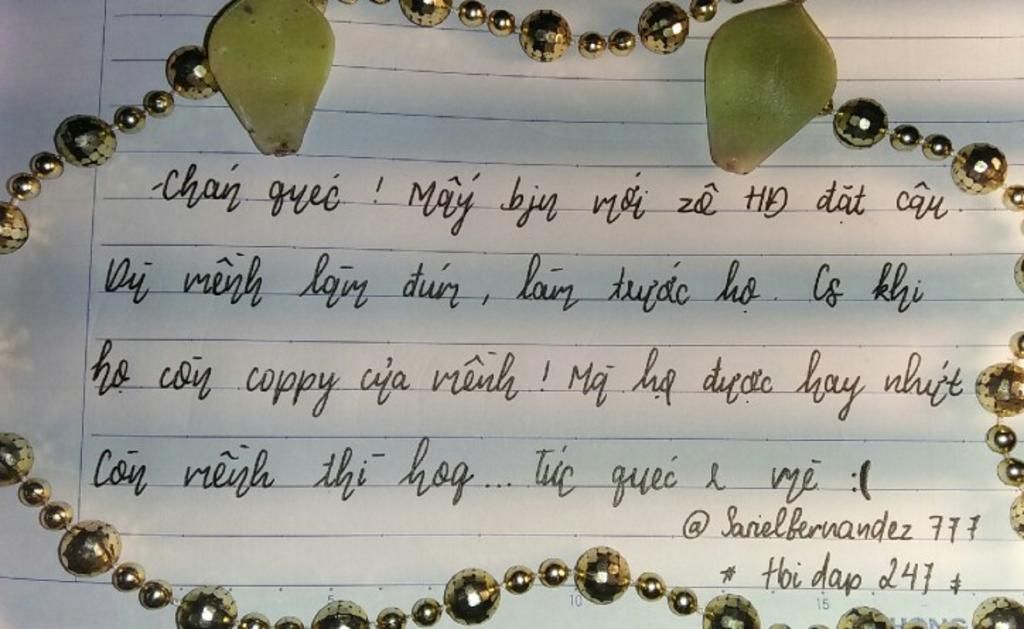 -Chán quéc ! Mấy bjn mới zô HĐ đặt câu
Dù mềnh làm đún, làm trước họ. Cs khi
họ còn coppy của mềnh ! Mà họ được hay nhứt
Còn mềnh thì hoq... Tức quéc l mè :(
@ Sarielfernandez 777
* Hoi dap 247 *
5 10 15
HONG